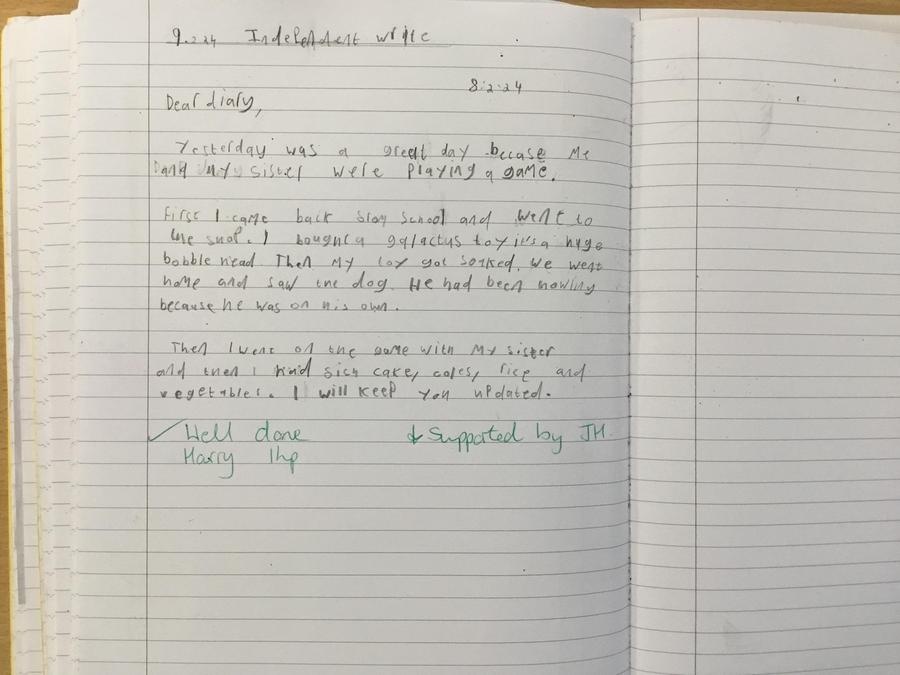 9.2.24 Independent write
8.2.24
Dear diary,
Yesterday was a great day because me
and my sister were playing a game.
First I came back from school and went to
the shop. I bought a galactus toy it's a huge
bobble head. Then my toy got soaked. We went
home and saw the dog. He had been howling
because he was on his own.
Then I went on the game with my sister
and then I had cake, rice and
vegetables. I will keep you updated.
Well done
Harry 1hp
Supported by JH.